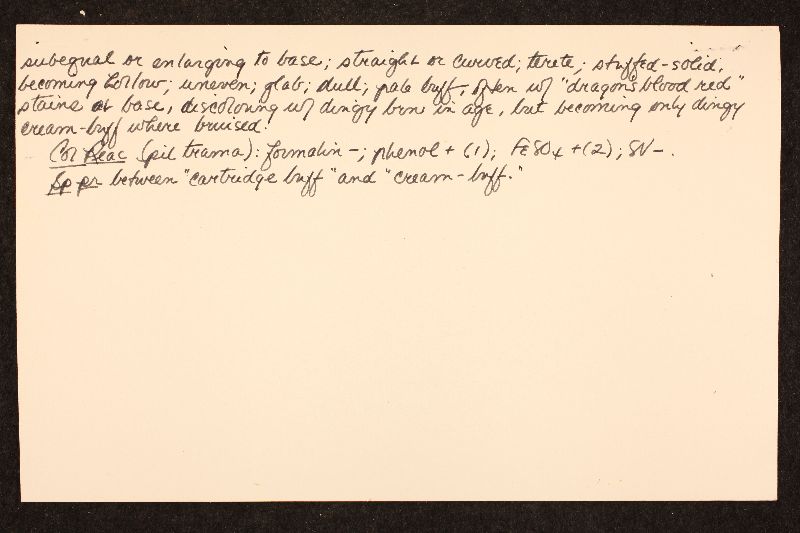 subequal or enlarging to base; straight or curved; terete; stuffed-solid,
becoming hollow; uneven; glab; dull; pale buff, often w/ "dragon's blood red"
stains at base, discoloring w/ dingy brn in age, but becoming only dingy
cream-buff where bruised.
Col Reac (pil trama): formalin -; phenol + (1); FeSO4 + (2); SV -.
Sp pr between "cartridge buff" and "cream-buff."